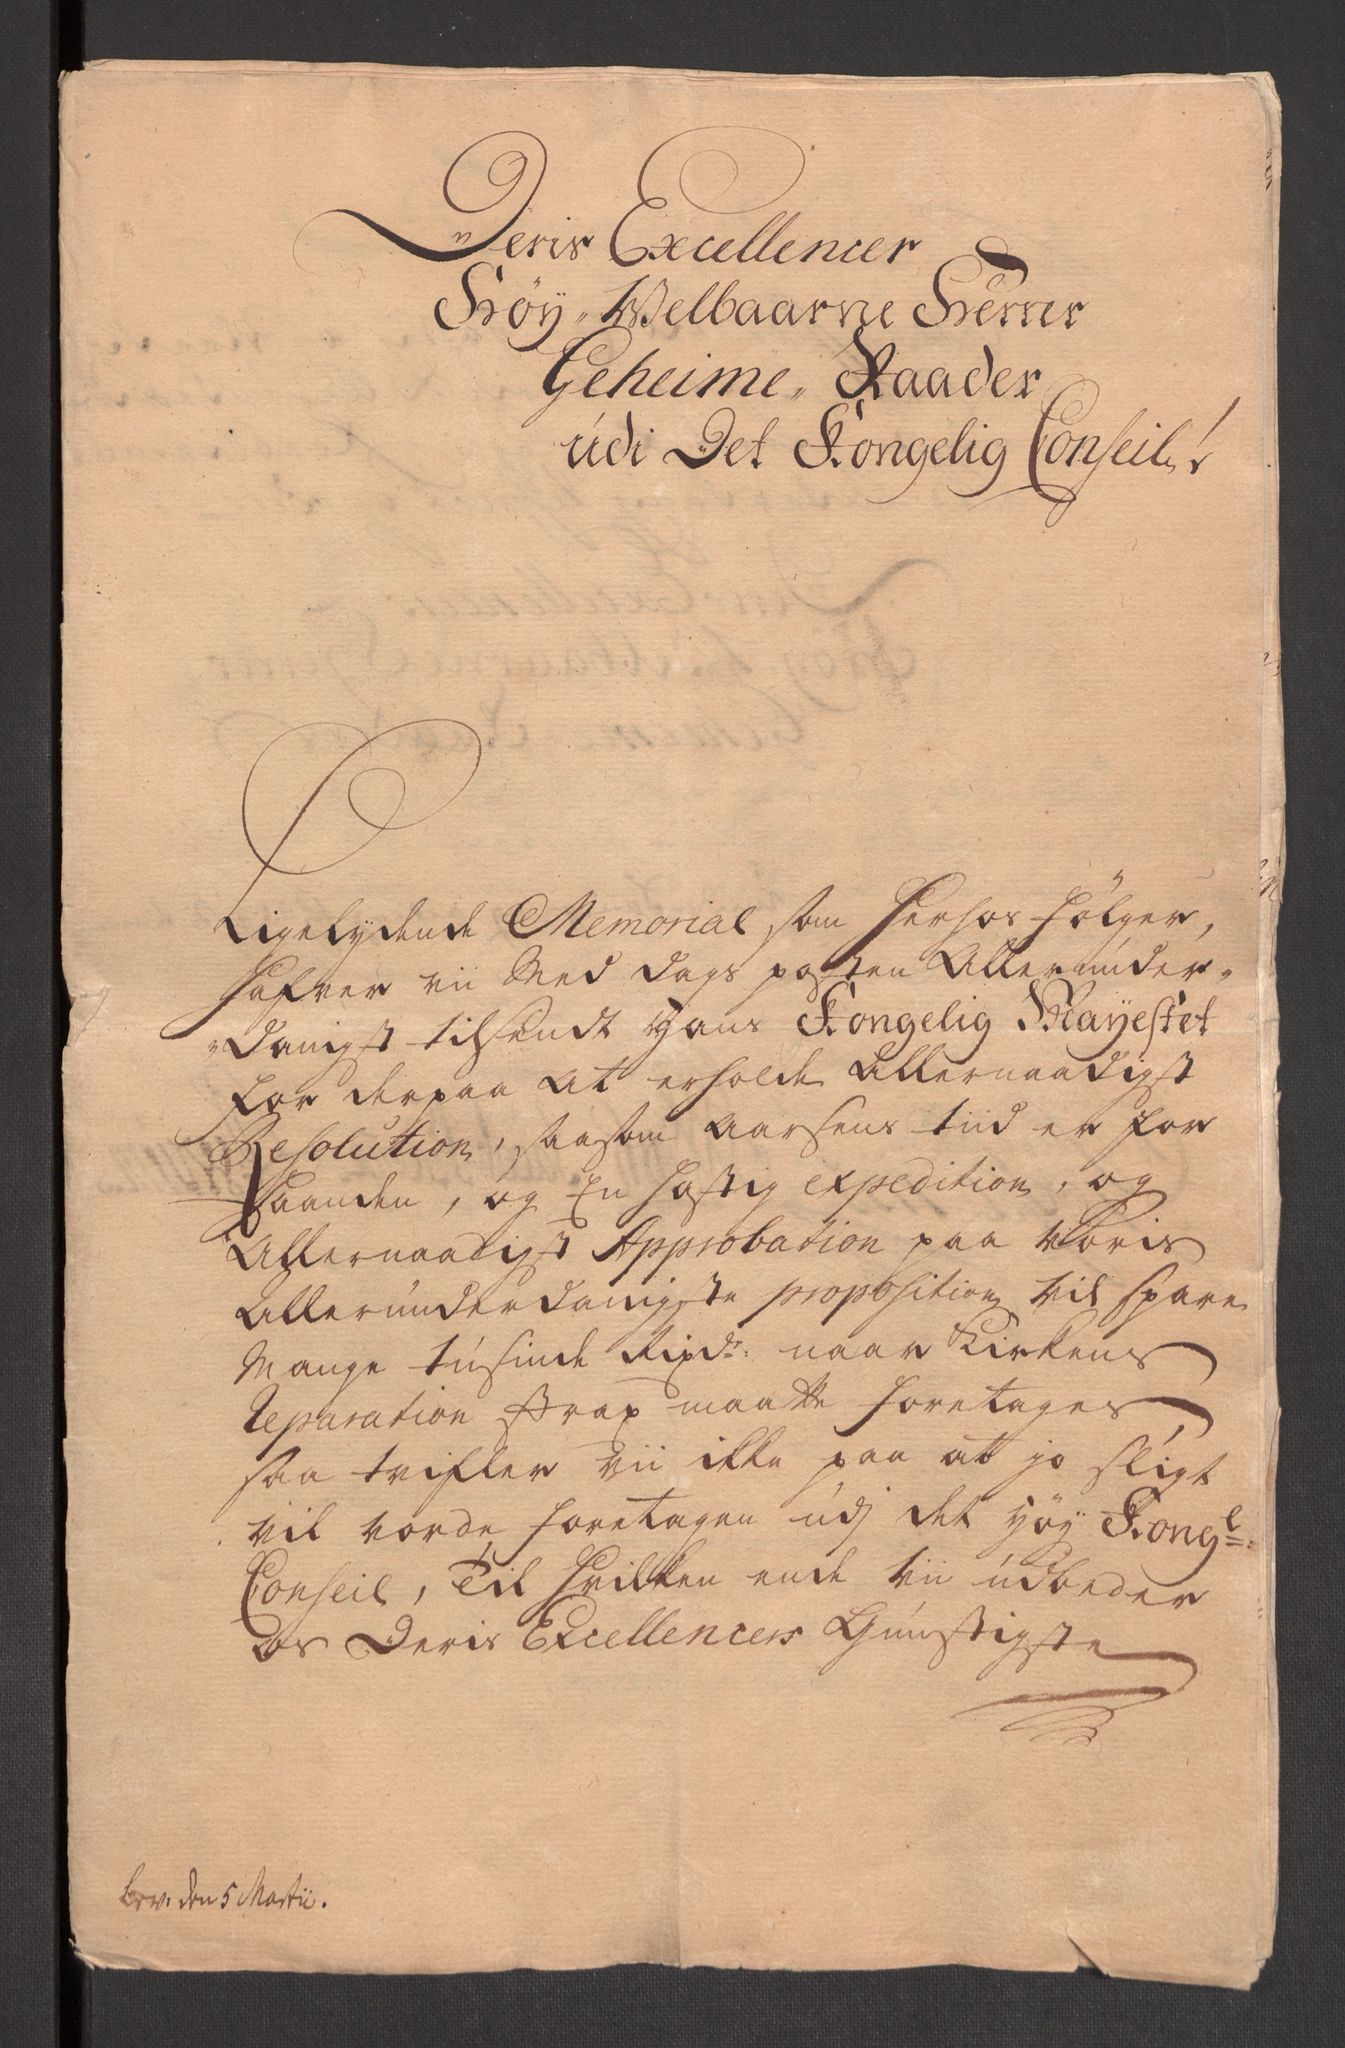 Deris Excellencer
Höy-Welbaarne Herrer
Geheime-Raader
udi Det Kongelig Conseil!
Ligelydende Memorial som herhos fölger,
hafver vii Med dags posten Allerunder-
danigst tilsendt Hans Kongelig Mayestet
for derpaa at erholde Allernaadigst
Resolution, saasom aarsens tiid er for
haanden, og En hastig expedition, og
Allernaadigst Approbation paa voris
Allerunderdanigste proposition vil spare
Mange tusinde Rixdr: naar Kirkens
Reparation strax maatte foretages
saa tvifler vii ikke paa at jo sligt
vil vorde foretagen udj det höy Kongl:
Conseil, Til hvilken ende vii udbeder
os Deris Excellencers Gunstigste
den 5 Martii.